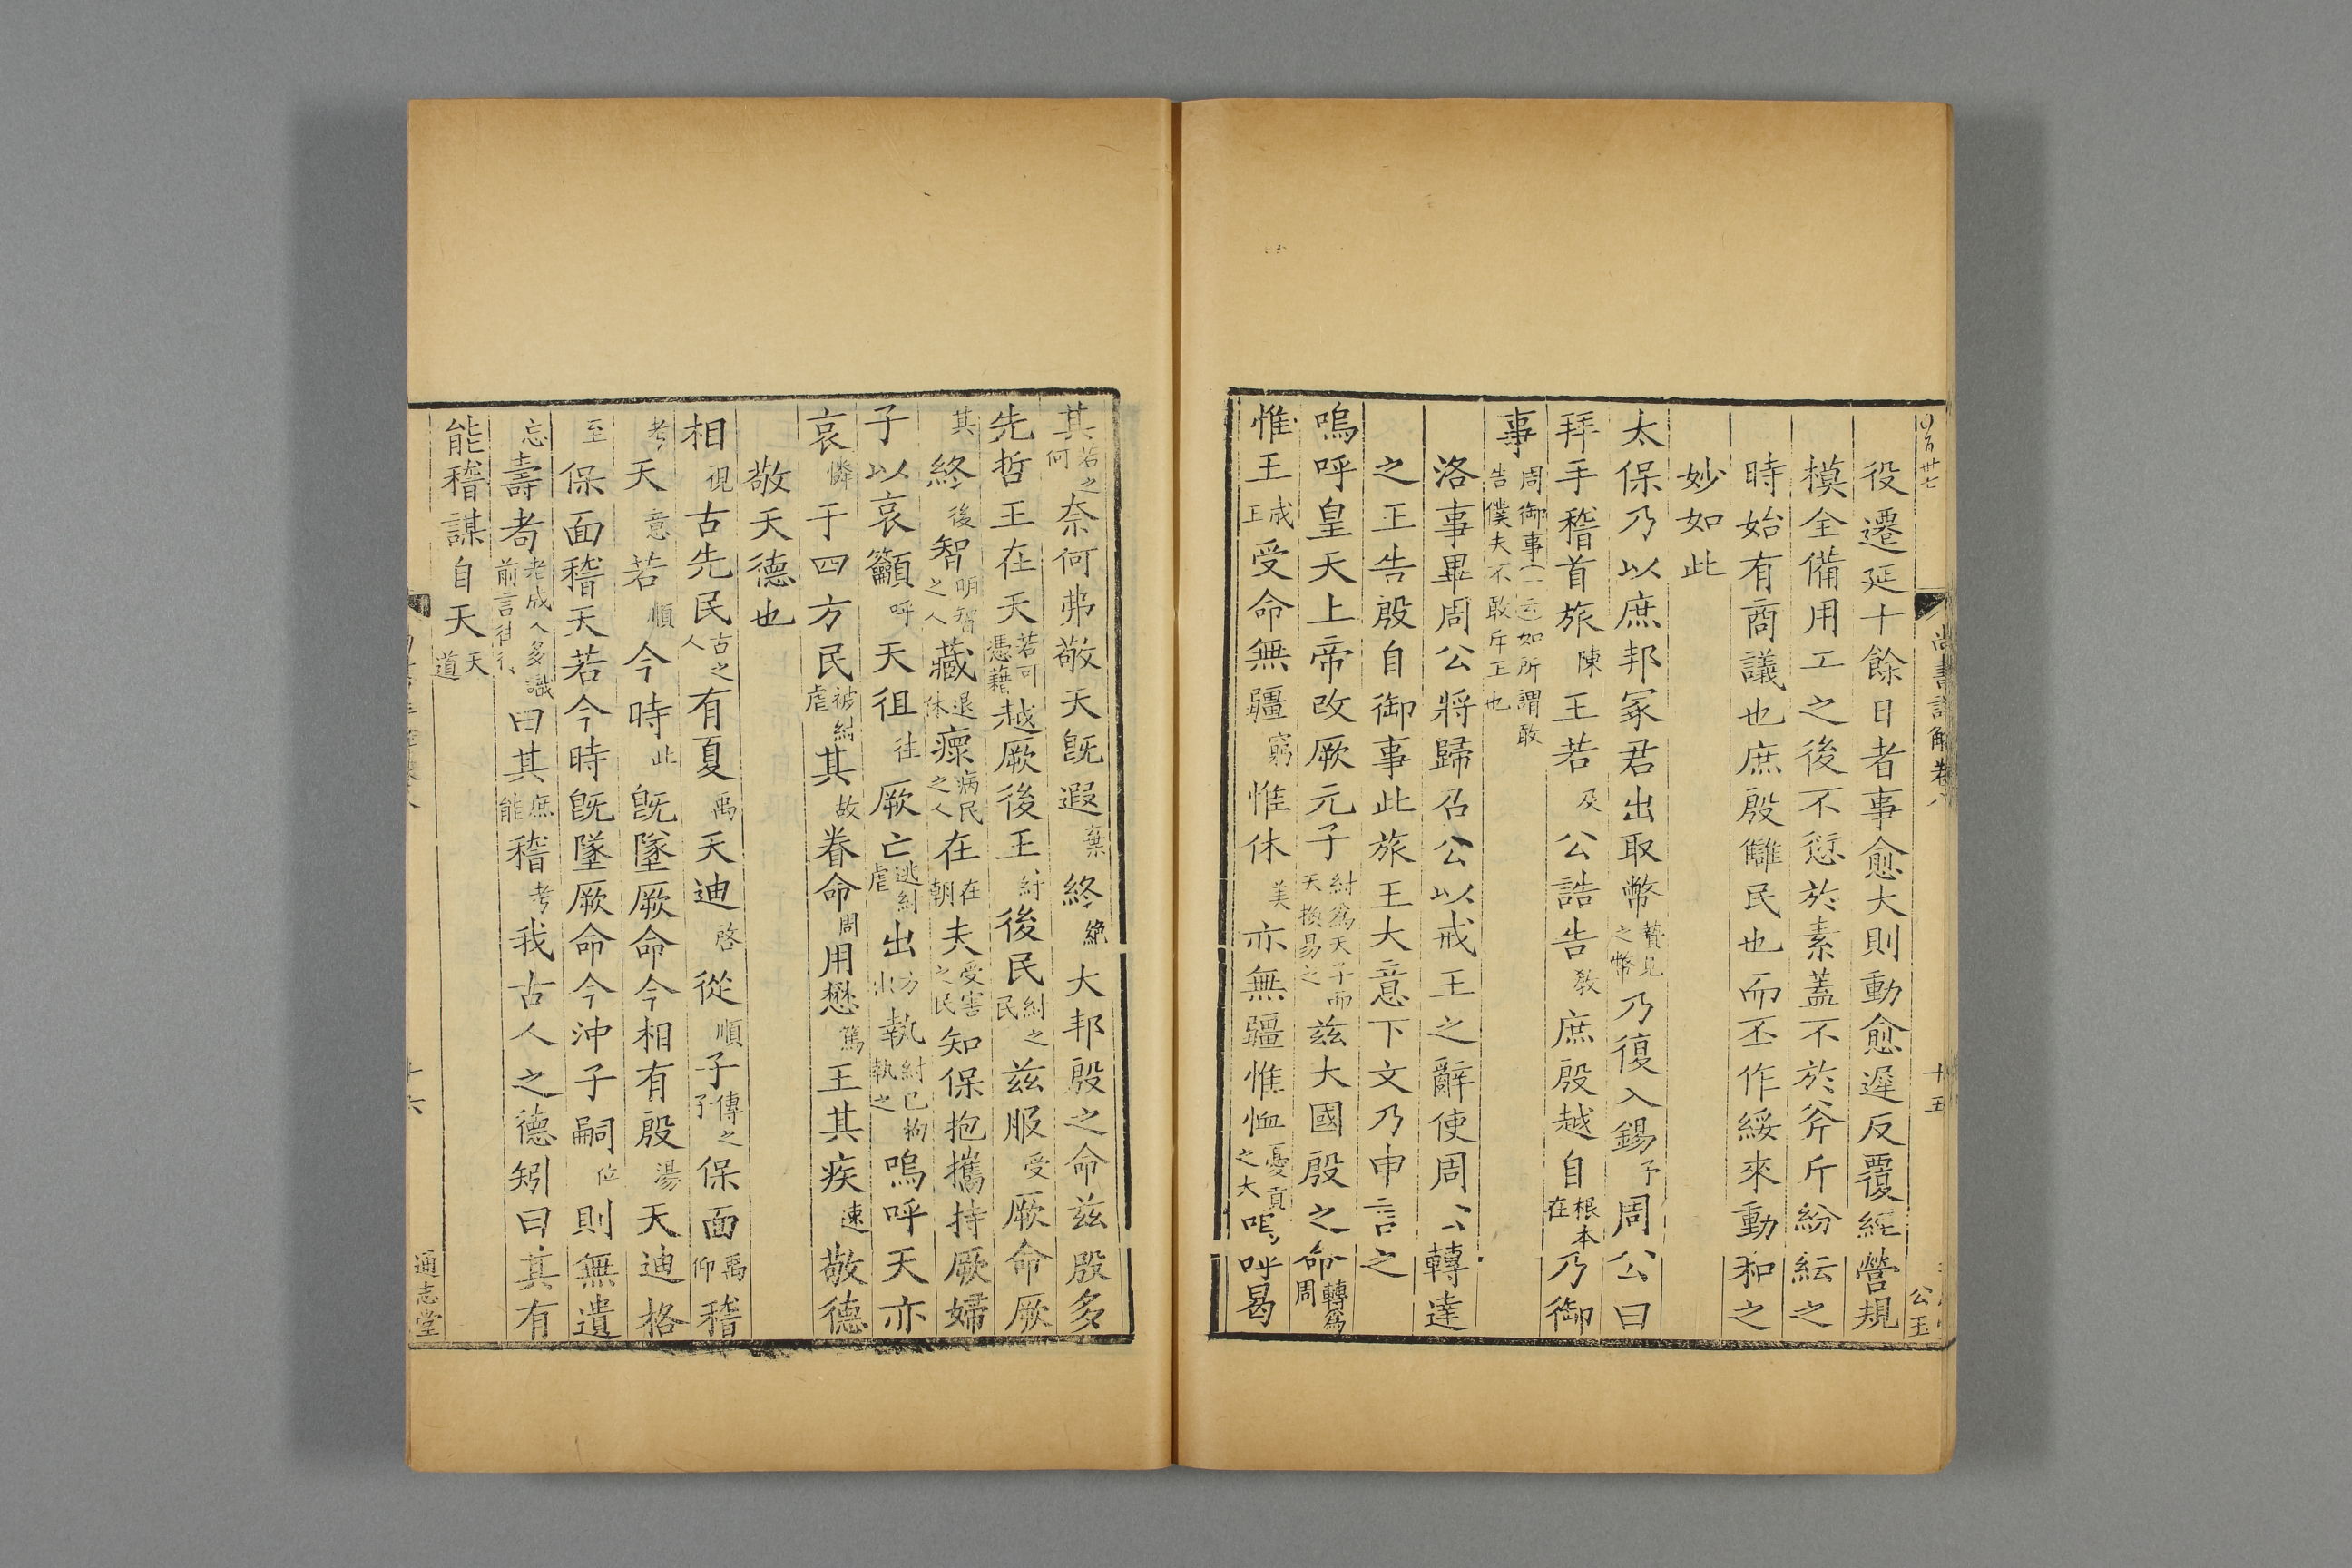 役遷延十餘日者事愈大則動愈遲反覆經營規
模全備用工之後不愆於素蓋不於斧斤紛紜之
時始有商議也庶殷讎民也而丕作綏來動和之
妙如此
太保乃以庶邦冢君出取幣贄見之幣乃復入錫予周公曰
拜手稽首旅陳王若及公誥告教庶殷越自根本在乃御
事周御事云如所謂敢告僕夫不敢斥王也
洛事畢周公將歸召公以戒王之辭使周公轉達
之王告殷自御事此旅王大意下文乃申言之
嗚呼皇天上帝改厥元子紂爲天子而天換易之茲大國殷之命轉爲周
惟王成王受命無疆窮惟休美亦無疆惟恤憂責之大嗚呼曷
其若之何奈何弗敬天旣遐棄終絶大邦殷之命茲殷多
先哲王在天若可憑藉越厥後王紂後民紂之民茲服受厥命厥
其終後智明智之人藏退休瘝病民之人在在朝夫受害之民知保抱攜持厥婦
子以哀籲呼天徂往厥亡逃紂虐出方出執紂已拘執之嗚呼天亦
哀憐于四方民被紂虐其故眷命周用懋篤王其疾速敬德
敬天德也
相視古先民古之人有夏禹天迪啓從順子傳之子保面禹仰稽
考天意若順今時此旣墜厥命今相有殷湯天迪格
至保面稽天若今時旣墜厥命今沖子嗣位則無遺
忘壽耇老成人多識前言往行曰其庶能稽考我古人之德矧曰其有
能稽謀自天天道
尚書詳解卷八
十五
公玉
十六
通志堂